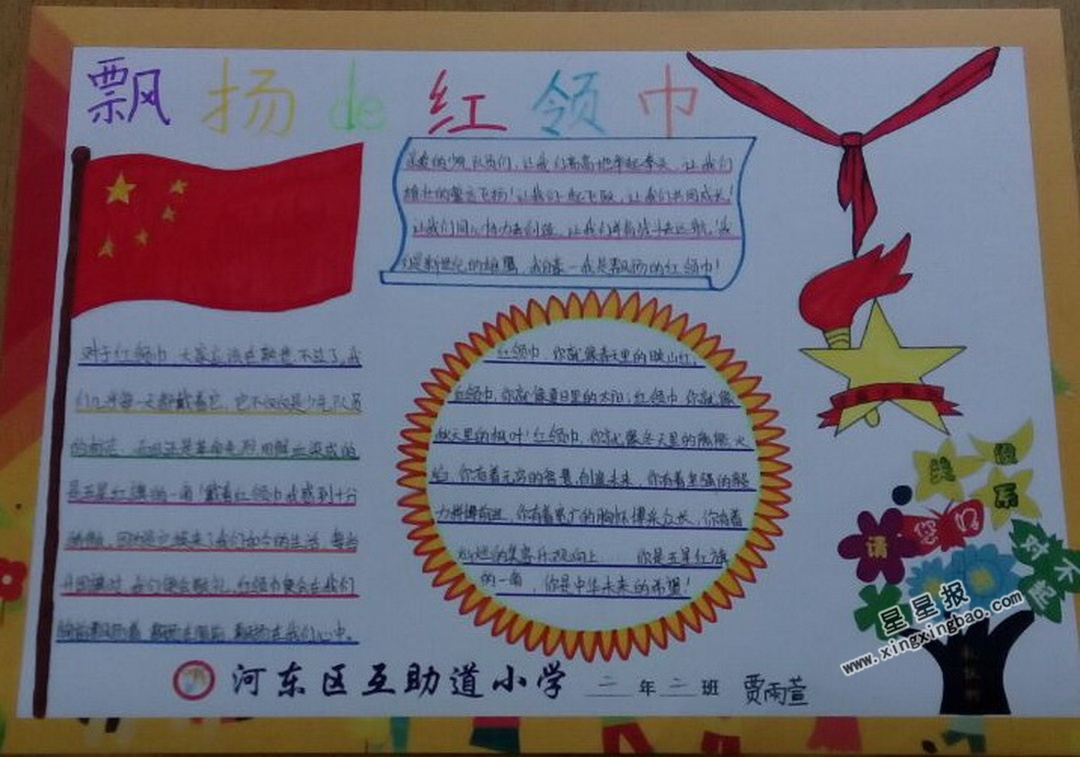 飘扬de红领巾
亲爱的少先队员们,让我们高高地举起拳头,让我们
雄壮的誓言飞扬!让我们一起飞跃,让我们共同成长!
让我们同心协力去创造,让我们准备战斗去远航!我
们是新世纪的雄鹰,我自豪一我是飘扬的红领巾!
对于红领巾大家应该在熟悉不过了,我
们几乎每一天都戴着它,它不仅仅是少先队员
的标志,而且还是革命先烈用鲜血染成的
是五星红旗的一角!戴着红领巾我感到十分
骄傲,因为它换来了我们如今的生活,每当
升国旗时,我们便会敬礼,红领巾便会在我们
胸前飘扬着,飘扬在胸前,飘扬在我们心中。
红领巾,你就像春天里的映山红,
红领巾,你就像夏日里的太阳,红领巾,你就像
秋天里的枫叶!红领巾,你就像冬天里的熊熊火
焰,你有着无穷的智慧,创造未来,你有着坚强的毅
力拼搏前进,你有着宽广的胸怀博采众长,你有着
灿烂的笑容乐观向上......你是五星红旗
的一角,你是中华未来的希望!
您好
请
对不起
星星报
www.xingxingbao.com
河东区互助道小学 二年二班 贾雨萱